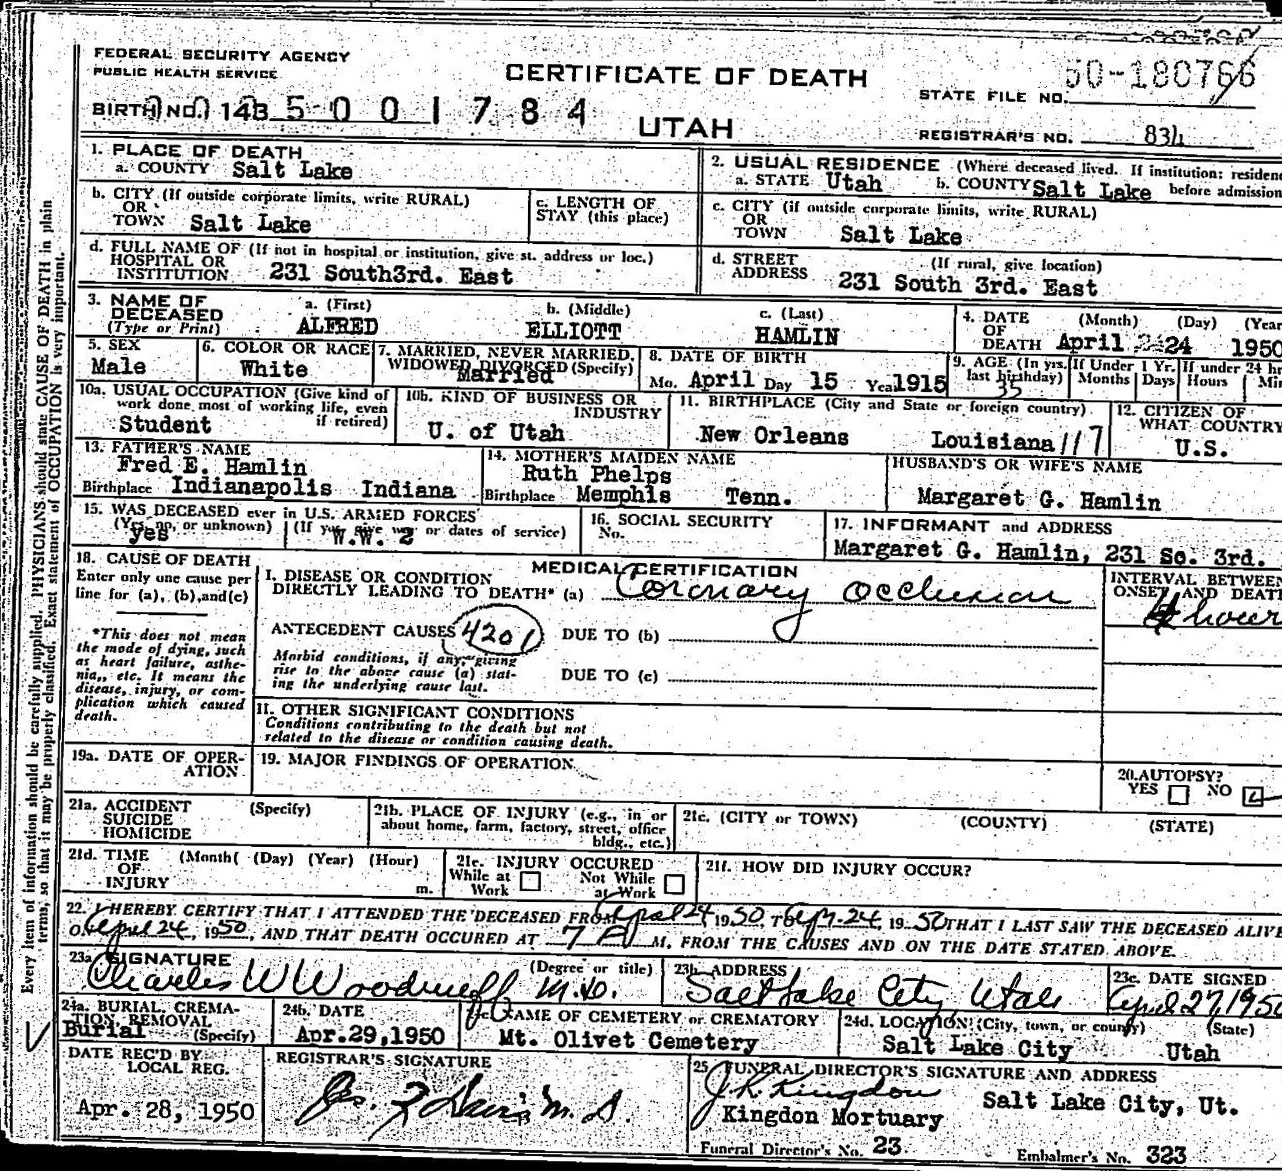 FEDERAL SECURITY AGENCY
PUBLIC HEALTH SERVICE
CERTIFICATE OF DEATH
50-180766
STATE FILE NO.
BIRTH NO. 143 5 0 0 1 7 8 4
UTAH
REGISTRAR'S NO. 834
1. PLACE OF DEATH
a. COUNTY Salt Lake
2. USUAL RESIDENCE (Where deceased lived. If institution: residenc
a. STATE Utah b. COUNTY Salt Lake before admission
b. CITY (If outside corporate limits, write RURAL)
OR
TOWN Salt Lake
c. LENGTH OF
STAY (this place)
c. CITY (if outside corporate limits, write RURAL)
OR
TOWN Salt Lake
d. FULL NAME OF (If not in hospital or institution, give st. address or loc.)
HOSPITAL OR
INSTITUTION 231 South3rd. East
d. STREET (If rural, give location)
ADDRESS 231 South 3rd. East
3. NAME OF
DECEASED
(Type or Print)
a. (First) b. (Middle) c. (Last)
ALFRED ELLIOTT HAMLIN
4. DATE (Month) (Day) (Year
OF
DEATH April 24 1950
5. SEX
Male
6. COLOR OR RACE
White
7. MARRIED, NEVER MARRIED,
WIDOWED DIVORCED (Specify)
Married
8. DATE OF BIRTH
Mo. April Day 15 Yea 1915
9. AGE (In yrs.
last birthday)
35
If Under 1 Yr.
Months Days
If under 24 hr
Hours Min
10a. USUAL OCCUPATION (Give kind of
work done most of working life, even
if retired)
Student
10b. KIND OF BUSINESS OR
INDUSTRY
U. of Utah
11. BIRTHPLACE (City and State or foreign country)
New Orleans Louisiana 117
12. CITIZEN OF
WHAT COUNTRY
U.S.
13. FATHER'S NAME
Fred E. Hamlin
Birthplace Indianapolis Indiana
14. MOTHER'S MAIDEN NAME
Ruth Phelps
Birthplace Memphis Tenn.
HUSBAND'S OR WIFE'S NAME
Margaret G. Hamlin
15. WAS DECEASED ever in U.S. ARMED FORCES
(Yes, no, or unknown) (If yes, give war or dates of service)
yes W.W. 2
16. SOCIAL SECURITY
No.
17. INFORMANT and ADDRESS
Margaret G. Hamlin, 231 So. 3rd.
18. CAUSE OF DEATH
Enter only one cause per
line for (a), (b), and (c)
*This does not mean
the mode of dying, such
as heart failure, asthe-
nia, etc. It means the
disease, injury, or com-
plication which caused
death.
MEDICAL CERTIFICATION
I. DISEASE OR CONDITION
DIRECTLY LEADING TO DEATH* (a) Coronary occlusion
ANTECEDENT CAUSES 4201 DUE TO (b)
Morbid conditions, if any, giving
rise to the above cause (a) stat-
ing the underlying cause last.
DUE TO (c)
II. OTHER SIGNIFICANT CONDITIONS
Conditions contributing to the death but not
related to the disease or condition causing death.
INTERVAL BETWEEN
ONSET AND DEATH
hour
19a. DATE OF OPER-
ATION
19. MAJOR FINDINGS OF OPERATION
20. AUTOPSY?
YES NO
21a. ACCIDENT (Specify)
SUICIDE
HOMICIDE
21b. PLACE OF INJURY (e.g., in or
about home, farm, factory, street, office
bldg., etc.)
21c. (CITY or TOWN) (COUNTY) (STATE)
21d. TIME (Month( (Day) (Year) (Hour)
OF
INJURY m.
21e. INJURY OCCURED
While at Not While
Work at Work
21f. HOW DID INJURY OCCUR?
22. I HEREBY CERTIFY THAT I ATTENDED THE DECEASED FROM April 24 1950, TO Apr. 24, 1950 THAT I LAST SAW THE DECEASED ALIVE
ON April 24, 1950, AND THAT DEATH OCCURED AT 7 P M, FROM THE CAUSES AND ON THE DATE STATED ABOVE.
23a. SIGNATURE (Degree or title)
Charles W Woodruff M.D.
23b. ADDRESS
Salt Lake City Utah
23c. DATE SIGNED
April 27, 1950
24a. BURIAL, CREMA-
TION, REMOVAL
Burial (Specify)
24b. DATE
Apr. 29, 1950
24c. NAME OF CEMETERY or CREMATORY
Mt. Olivet Cemetery
24d. LOCATION (City, town, or county) (State)
Salt Lake City Utah
DATE REC'D BY
LOCAL REG.
Apr. 28, 1950
REGISTRAR'S SIGNATURE
25 FUNERAL DIRECTOR'S SIGNATURE AND ADDRESS
J R Kingdon
Kingdon Mortuary
Salt Lake City, Ut.
Funeral Director's No. 23
Embalmer's No. 323
Every item of information should be carefully supplied. PHYSICIANS should state CAUSE OF DEATH in plain
terms, so that it may be properly classified. Exact statement of OCCUPATION is very important.